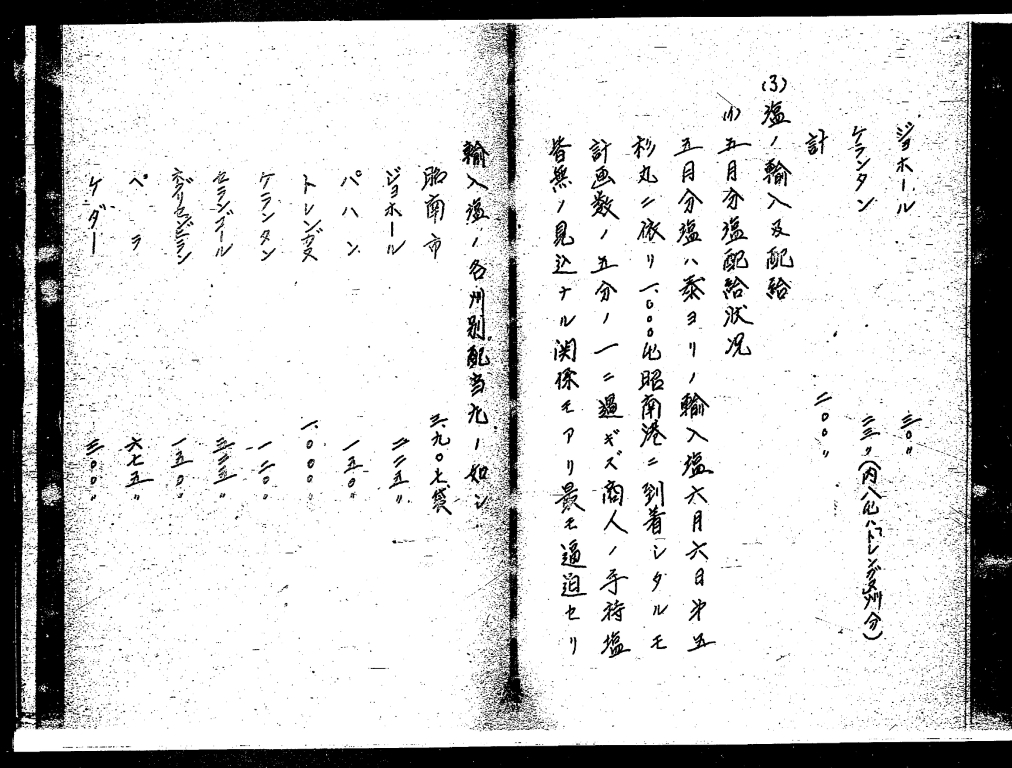 ジョホール 三〇〃
ケランタン 二三〃(内八屯ハトレンガヌ州分)
計 二〇〇〃
(3) 塩ノ輸入及配給
(1) 五月分塩配給状況
五月分塩ハ泰ヨリノ輸入塩六月六日第五
杉丸ニ依リ一、〇〇〇屯昭南港ニ到着シタルモ
計画数ノ五分ノ一ニ過ギズ商人ノ手持塩
皆無ノ見込ナル関係モアリ最モ逼迫セリ
輸入塩ノ各州別配当九ノ如シ
昭南市 三、九〇七袋
ジョホール 二二五〃
パハン 一五〇〃
トレンガヌ 一、〇〇〇〃
ケランタン 一二〇〃
セランゴール 三二三〃
ネグリセンビラン 一五〇〃
ペラ 六七五〃
ケダー 三〇〇〃